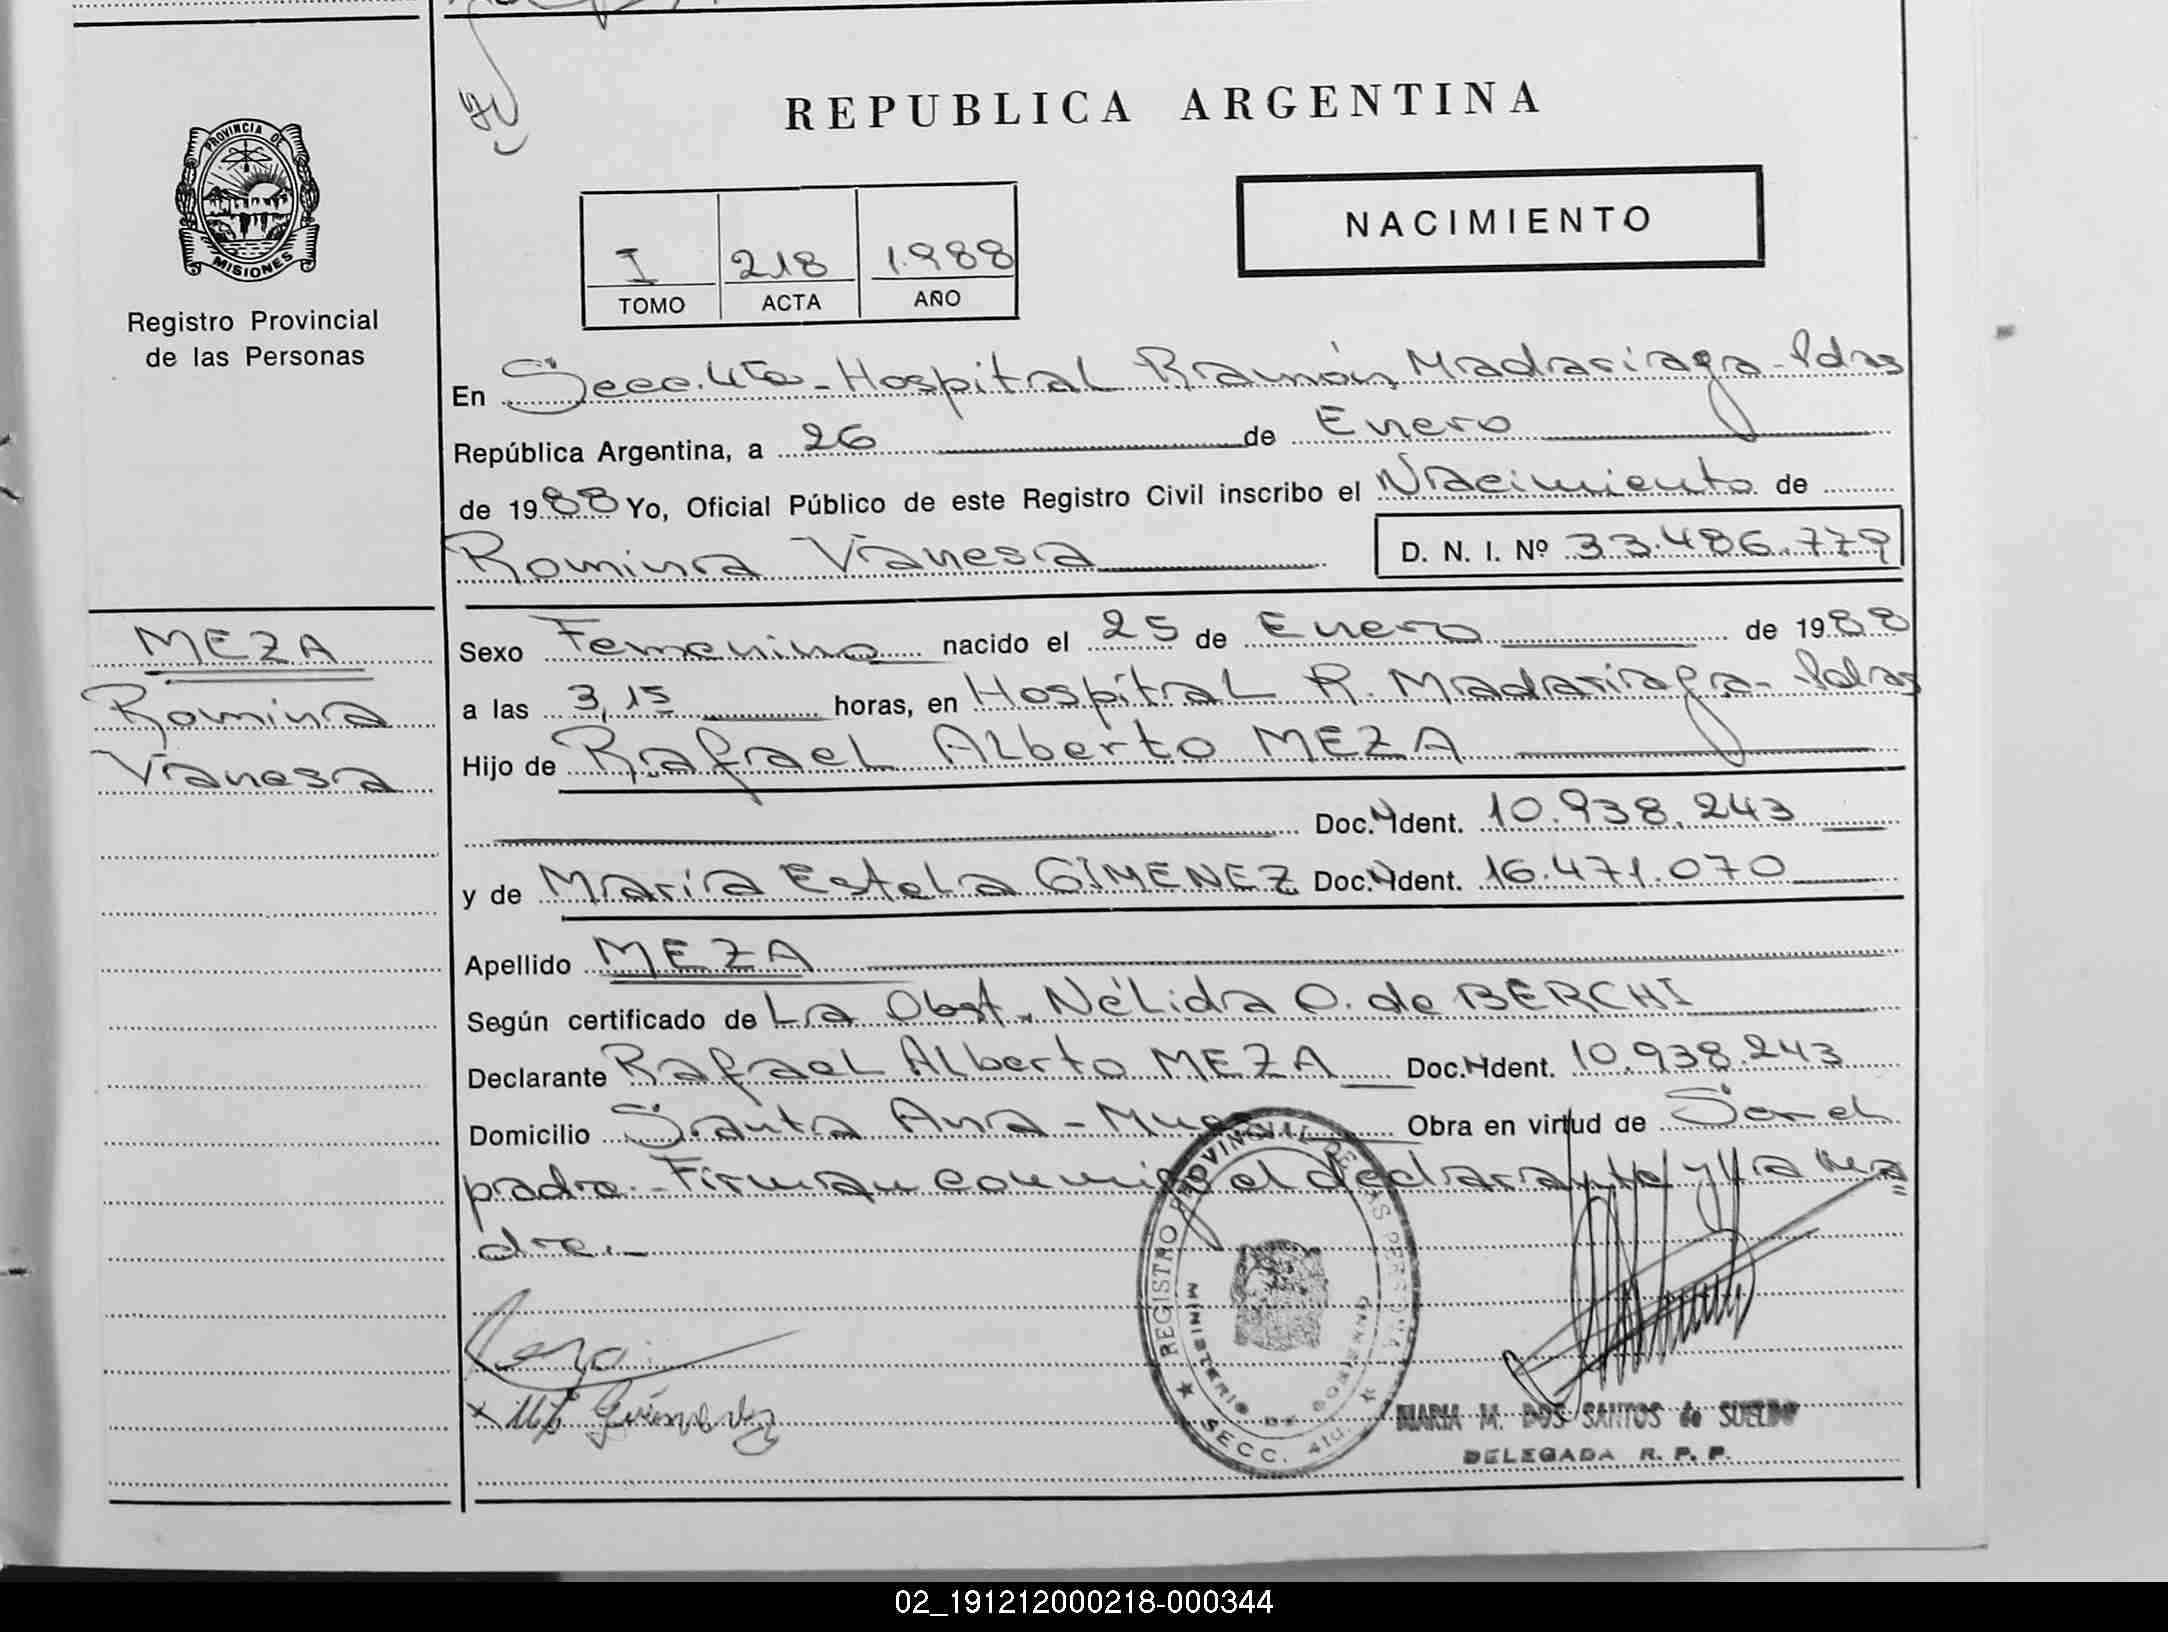 REPUBLICA ARGENTINA
PROVINCIA DE
MISIONES
Registro Provincial
de las Personas
NACIMIENTO
I 218 1.988
TOMO ACTA AÑO
En Secc. 4ta - Hospital Ramón Madariaga - Pdas
República Argentina, a 26 de Enero
de 1988 Yo, Oficial Público de este Registro Civil inscribo el Nacimiento de
Romina Vanesa D. N. I. Nº 33.486.779
MEZA
Romina
Vanesa
Sexo Femenino nacido el 25 de Enero de 1988
a las 3,15 horas, en Hospital R. Madariaga - Pdas
Hijo de Rafael Alberto MEZA
Doc. Ident. 10.938.243
y de María Estela GIMENEZ Doc. Ident. 16.471.070
Apellido MEZA
Según certificado de La Obst. Nélida O. de BERCHI
Declarante Rafael Alberto MEZA Doc. Ident. 10.938.243
Domicilio Santa Ana - Obra en virtud de Ser el
padre. - Firman conmigo el declarante y la ma
dre. -
REGISTRO PROVINCIAL DE LAS PERSONAS
MINISTERIO DE GOBIERNO
SECC. 4ta.
MARIA M. DOS SANTOS de SUELDO
DELEGADA R. P. P.
02_191212000218-000344